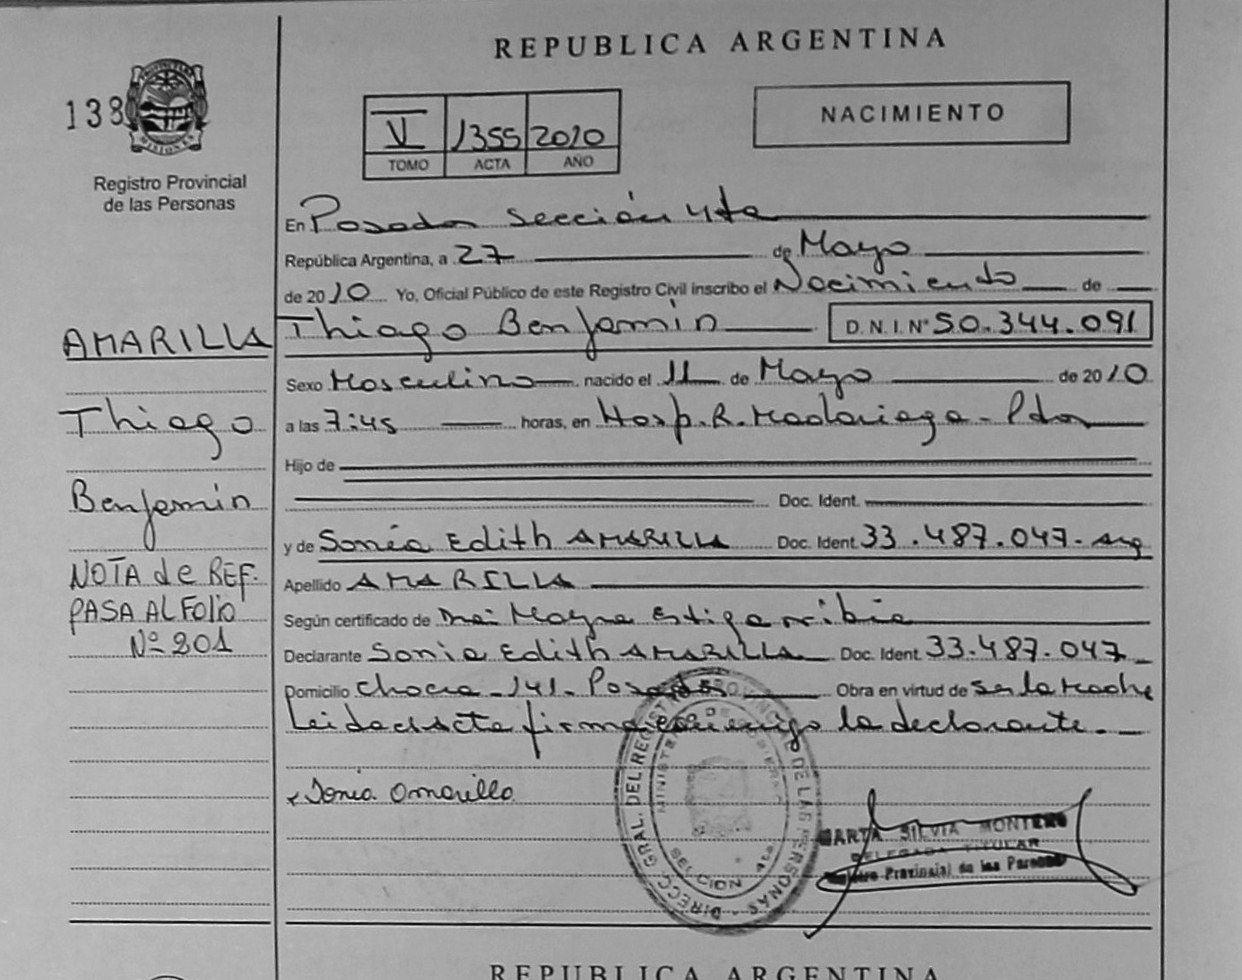 REPUBLICA ARGENTINA
138
PROVINCIA DE MISIONES
Registro Provincial
de las Personas
V 1355 2010
TOMO ACTA AÑO
NACIMIENTO
En Posadas sección 4ta
República Argentina, a 27 de Mayo
de 2010 Yo, Oficial Público de este Registro Civil inscribo el Nacimiento de
Thiago Benjamin D.N.I. Nº 50.344.091
AMARILLA
Sexo Masculino nacido el 11 de Mayo de 2010
Thiago
a las 7:45 horas, en Hosp. R. Madariaga - Pdas
Hijo de
Benjamin
Doc. Ident.
y de Sonia Edith AMARILLA Doc. Ident. 33.487.047- Arg
NOTA de REF.
Apellido AMARILLA
PASA AL FOLIO
Según certificado de Mayra Estigarribia
Nº 201
Declarante Sonia Edith AMARILLA Doc. Ident. 33.487.047
Domicilio chacra 141- Posadas Obra en virtud de ser la Madre
Leida el Acta firma conmigo la declarante.
Sonia Amarilla
DIRECC. GRAL. DEL REGISTRO PROVINCIAL DE LAS PERSONAS
MINISTERIO DE GOBIERNO
SECCION 4ta
MARTA SILVIA MONTERO
DELEGADA TITULAR
Registro Provincial de las Personas
REPUBLICA ARGENTINA